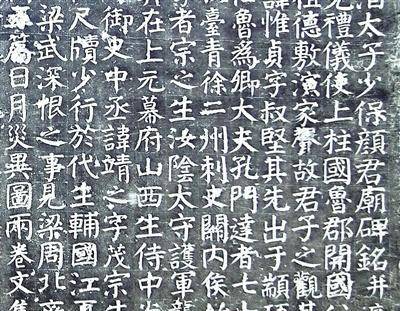 酒太子少保顏君廟碑銘并
充禮儀使上柱國魯郡開國公
祖德敷演家聲故君子之觀其
諱惟貞字叔堅其先出于顓頊
魯為卿大夫孔門達者七
臺青徐二州刺史關內侯始
孝者宗之生汝陰太守護軍襲
在上元幕府山西生侍中
御史中丞諱靖之字茂宗生
尺牘少行於代生輔國江夏
梁武深恨之事見梁周北齊
篇日月災異圖兩卷文集